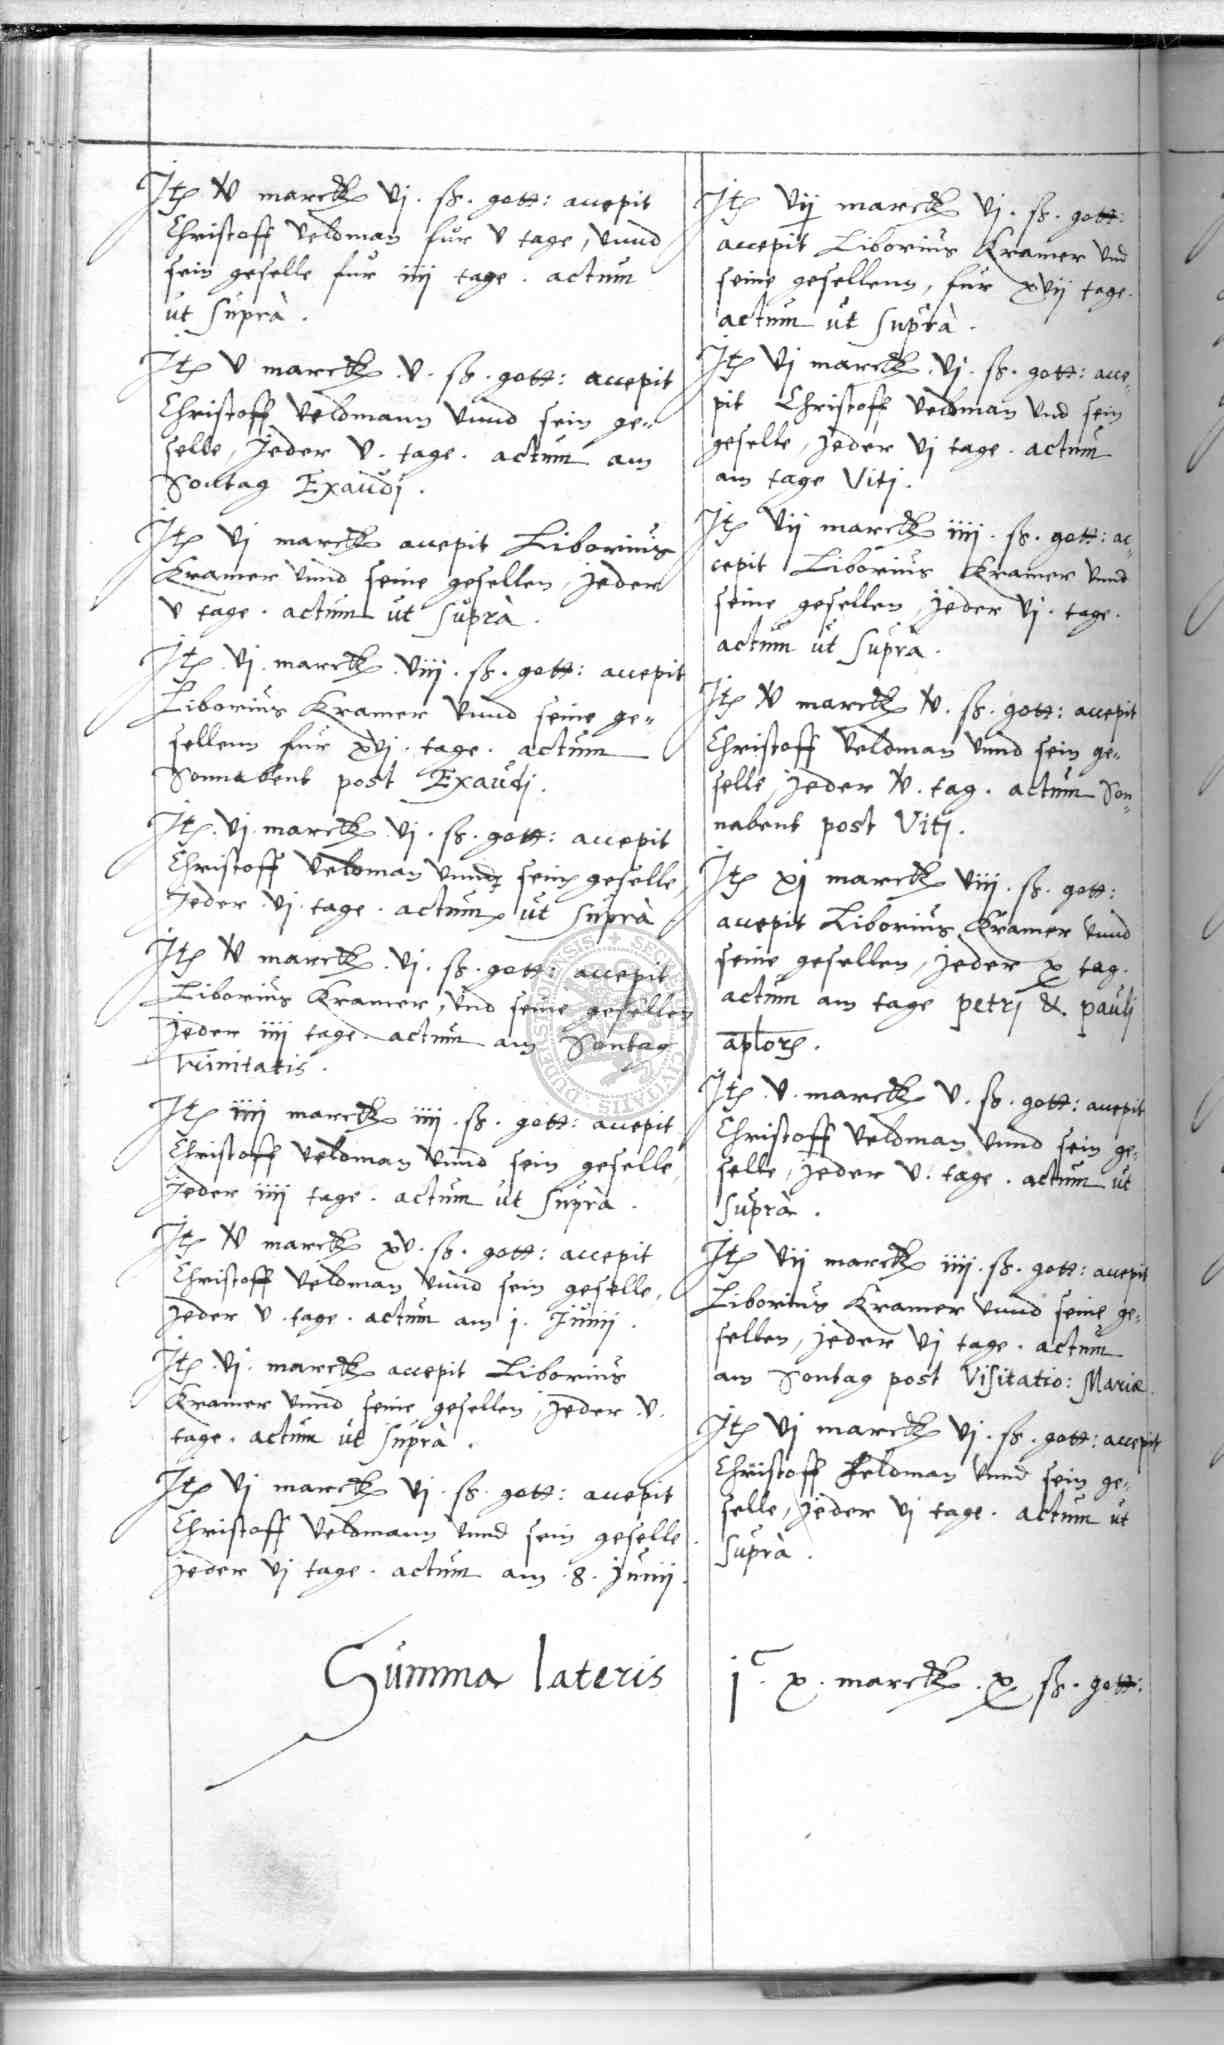 Jt(em) v̸ marck vj · ß · gott: accepit
Christoff Veldman fur v tage, vnnd
sein geselle fur iiij tage . actum
ut suprà .
Jt(em) v marck · v · ß · gott: accepit
Christoff Veldmann vnnd sein ge„
selle, jeder v · tage . actum am
Sontag Exaudj .
Jt(em) vj marck accepit Liborius
Kramer vnnd seine gesellen, jeder
v tage . actum ut suprà .
Jt(em) · vj · marck · viij · ß · gott: accepit
Liborius Kramer vnnd seine ge„
sellenn fur xvj · tage . actum
Sonnabent post Exaudj .
Jt(em) · vj · marck · vj · ß · gott: accepit
Christoff Veldman vnnd sein geselle,
Jeder · vj · tage . actum ut suprà
Jt(em) v̸ marck · vj · ß · gott: accepit
Liborius Kramer, vnd seine gesellen
jeder iiij tage . actum am Sontag
Trinitatis .
Jt(em) iiij marck iiij · ß · gott: accepit
Christoff Veldman vnnd sein geselle,
jeder iiij tage . actum ut suprà .
Jt(em) v̸ marck xv · ß · gott: accepit
Christoff Veldman vnnd sein geselle,
jeder v · tage . actum am j · Junij .
Jt(em) · vj · marck accepit Liborius
Kramer vnnd seine gesellen, jeder · v ·
tage . actum ut suprà .
Jt(em) vj marck vj · ß · gott: accepit
Christoff Veldmann vnnd sein geselle
jeder vj tage . actum am · 8 · Junij .
Jt(em) vij marck vj · ß · gott:
accepit Liborius Kramer vnd
seine gesellenn, fur xvij tage .
actum ut suprà .
Jt(em) vj marck · vj · ß · gott: acce„
pit Christoff Veldman vnd sein
geselle, jeder vj tage . actum
am tage Vitj .
Jt(em) vij marck iiij · ß · gott: ac„
cepit Liborius Kramer vnnd
seine gesellen, jeder vj · tage .
actum ut suprà .
Jt(em) v̸ marck v̸ · ß · gott: accepit
Christoff Veldman vnnd sein ge„
selle, jeder v̸ · tag . actum Son„
nabent post Vitj .
Jt(em) xj marck viij · ß · gott:
accepit Liborius Kramer vnnd
seine gesellen, jeder x tag .
actum am tage petrj &. paulj
aplor(um) .
Jt(em) · v · marck v · ß · gott: accepit
Christoff Veldman vnnd sein ge„
selle, jeder v · tage . actum ut
suprà .
Jt(em) vij marck iiij · ß · gott: accepit
Liborius Kramer vnnd seine ge„
sellen, jeder vj tage . actum
am Sontag post Visitatio: Mariæ .
Jt(em) vj marck vj · ß · gott: accepit
Christoff Feldman vnnd sein ge„
selle, jeder vj tage . actum ut
suprà .
Summa lateris j^c · x · marck · x ß · gott: